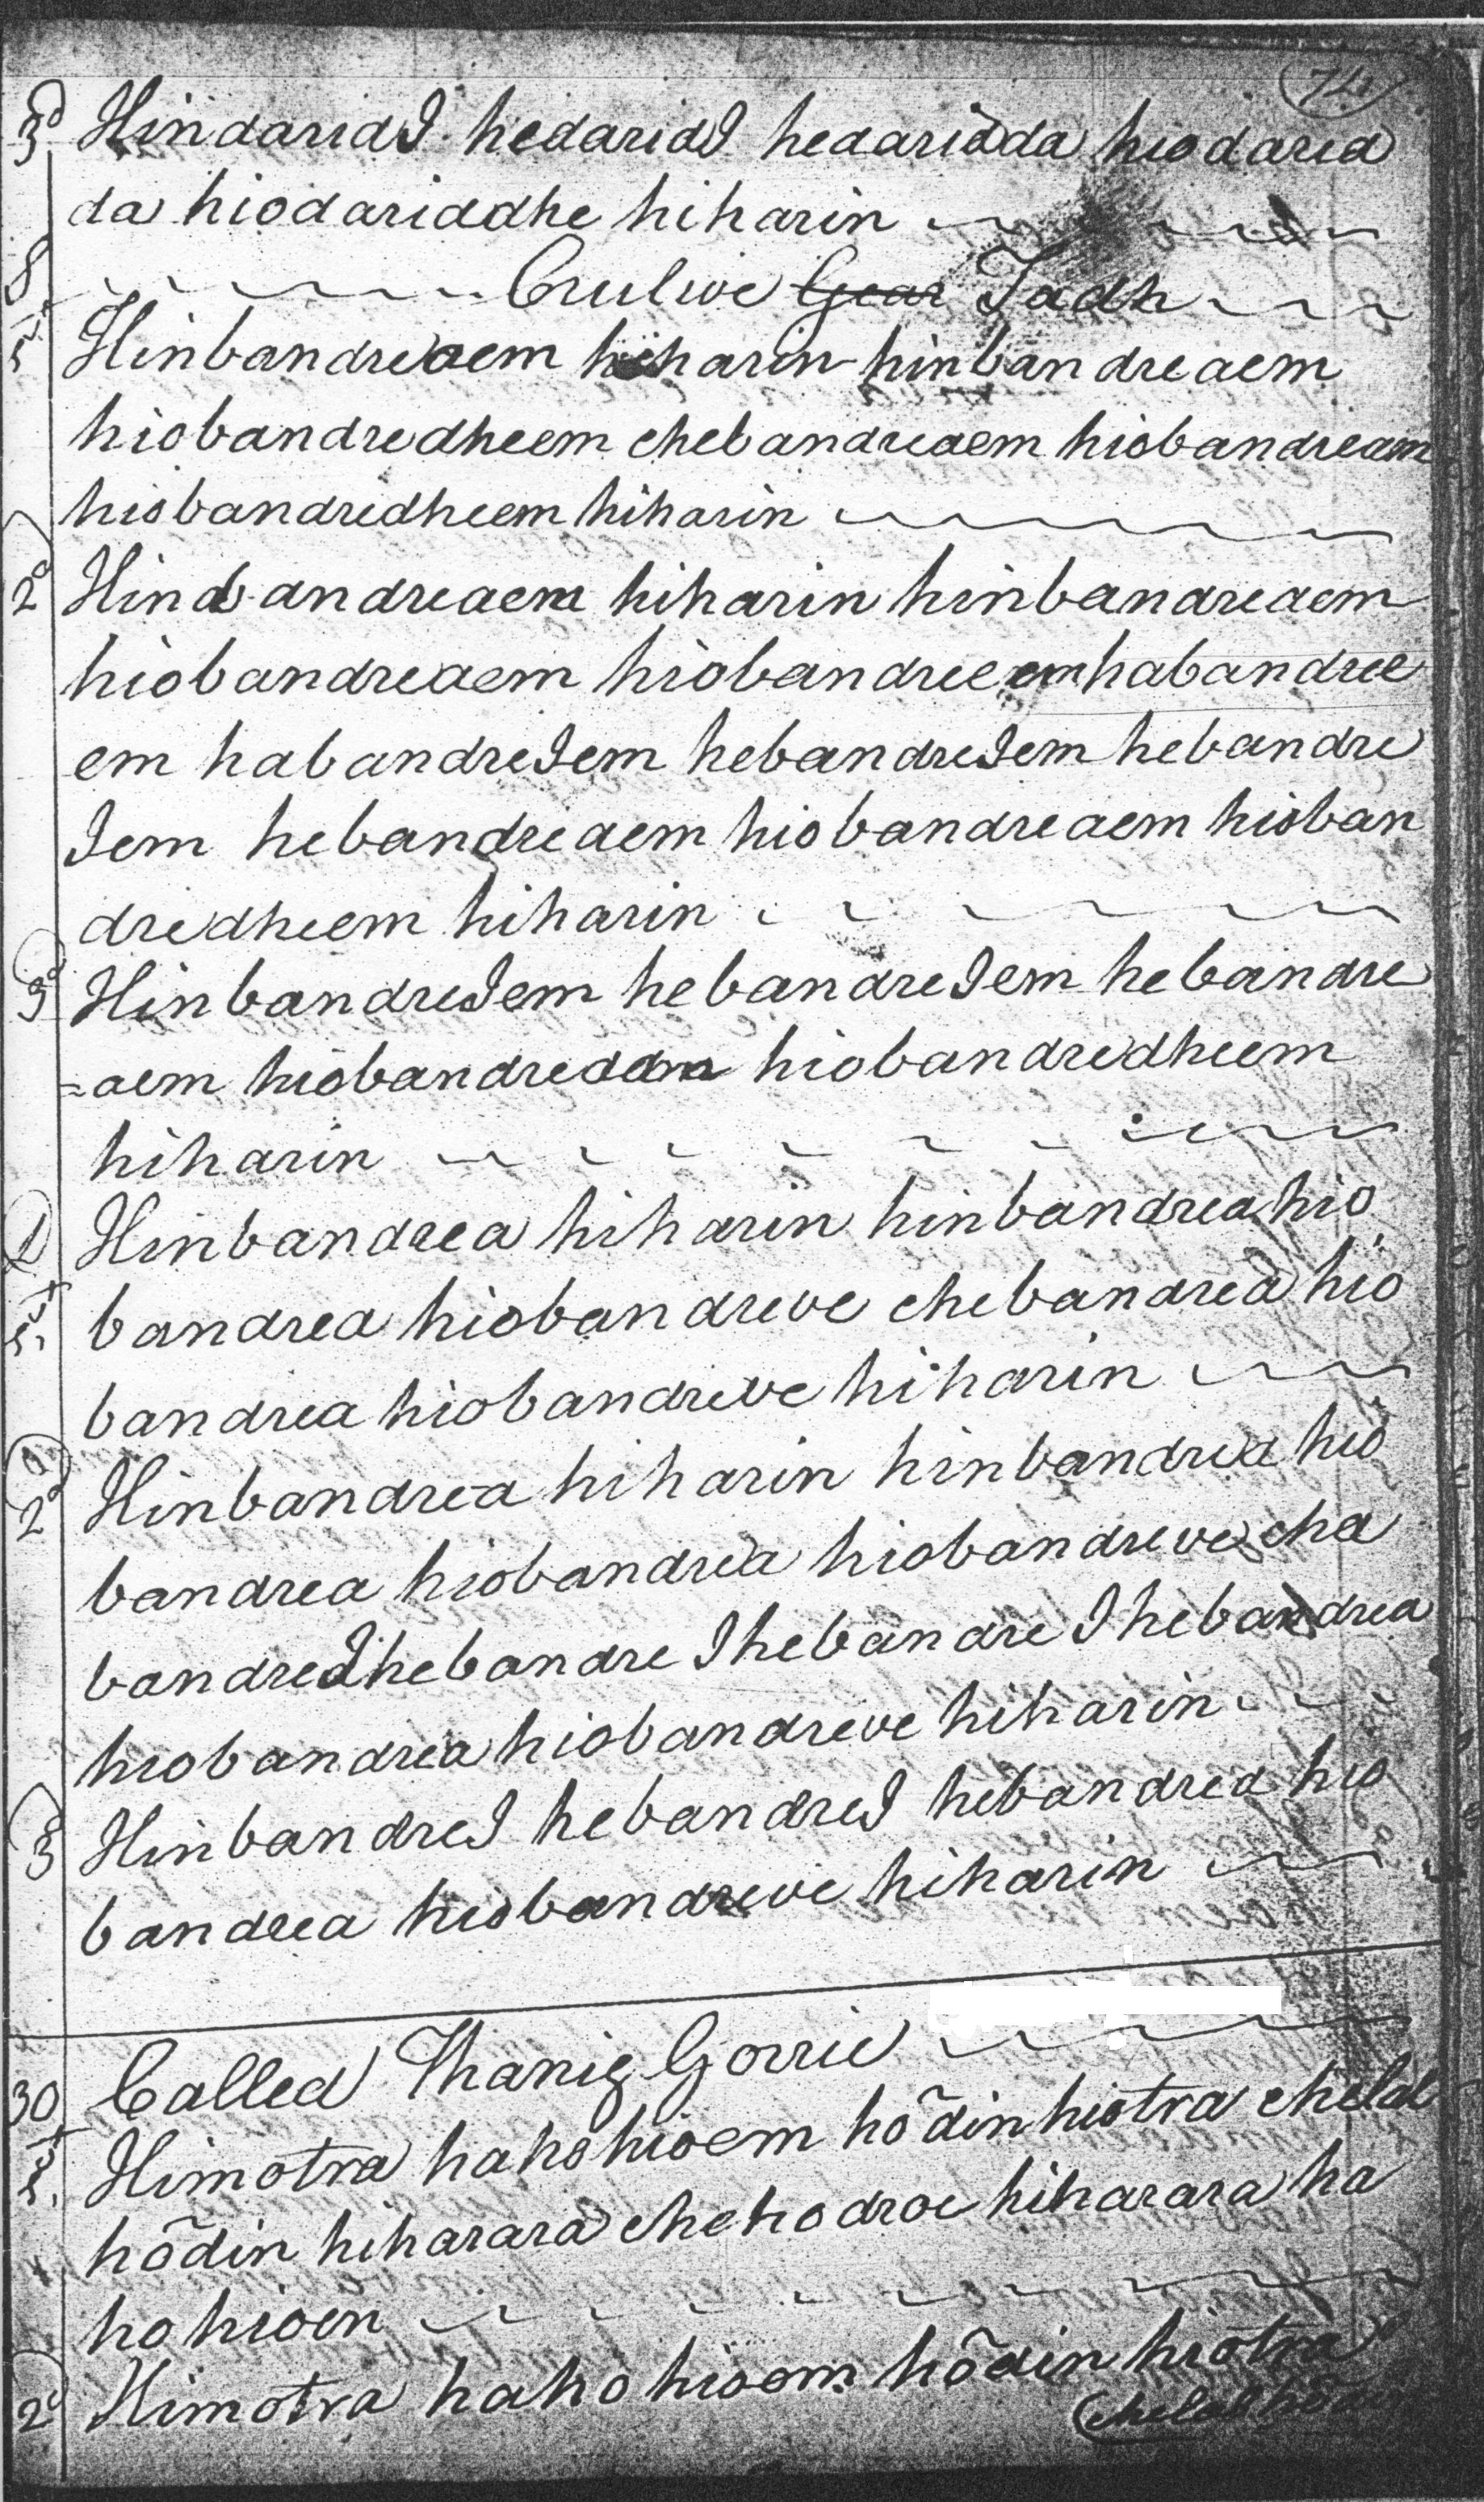 74
3d Hindaridl hedaridl hedaridda hiodarid
da hiodariddhe hiharin
8 Crulive Gear Tadh
1st Hinbandreaem hiharin hinbandreaem
hiobandredheem chebandreaem hiobandreaem
hiobandredheem hiharin
2d Hinbandreaem hiharin hinbandreaem
hiobandreaem hiobandreeem habandree
em habandreIem hebandreIem hebandre
Iem hebandreaem hiobandreaem hioban
dredheem hiharin
3d HinbandreIem hebandreIem hebandre
=aem hiobandre hiobandredheem
hiharin
1 Hinbandrea hiharin hinbandrea hio
1st bandrea hiobandreve chebandrea hio
bandrea hiobandreve hiharin
2d Hinbandrea hiharin hinbandrea hio
bandrea hiobandrea hiobandreve cha
bandreI hebandre I hebandre I hebandrea
hiobandrea hiobandreve hiharin
3d HinbandreI hebandreI hebandrea hio
bandrea hiobandreve hiharin
30 Called Thanig Gorrie
1st Himotra hahohioem hõdin hiotra chelal
hõdin hiharara chehodroe hiharara ha
hohioen
2d Himotra hahohioem hõdin hiotra
chelal hõdin